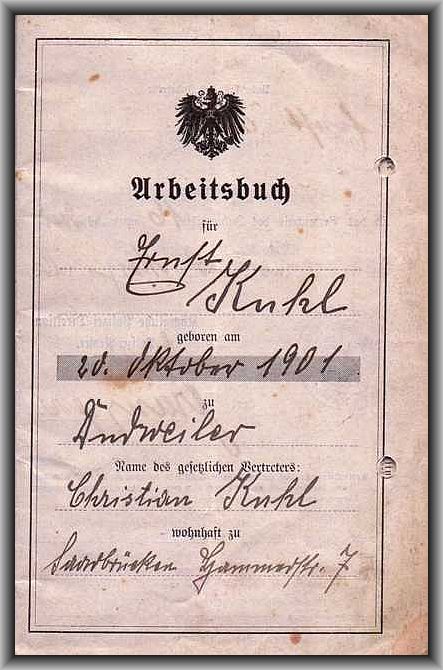 Arbeitsbuch
für
Ernst
Kuhl
geboren am
20. Oktober 1901
zu
Dudweiler
Name des gesetzlichen Vertreters:
Christian Kuhl
wohnhaft zu
Saarbrücken Hammerstr. 7